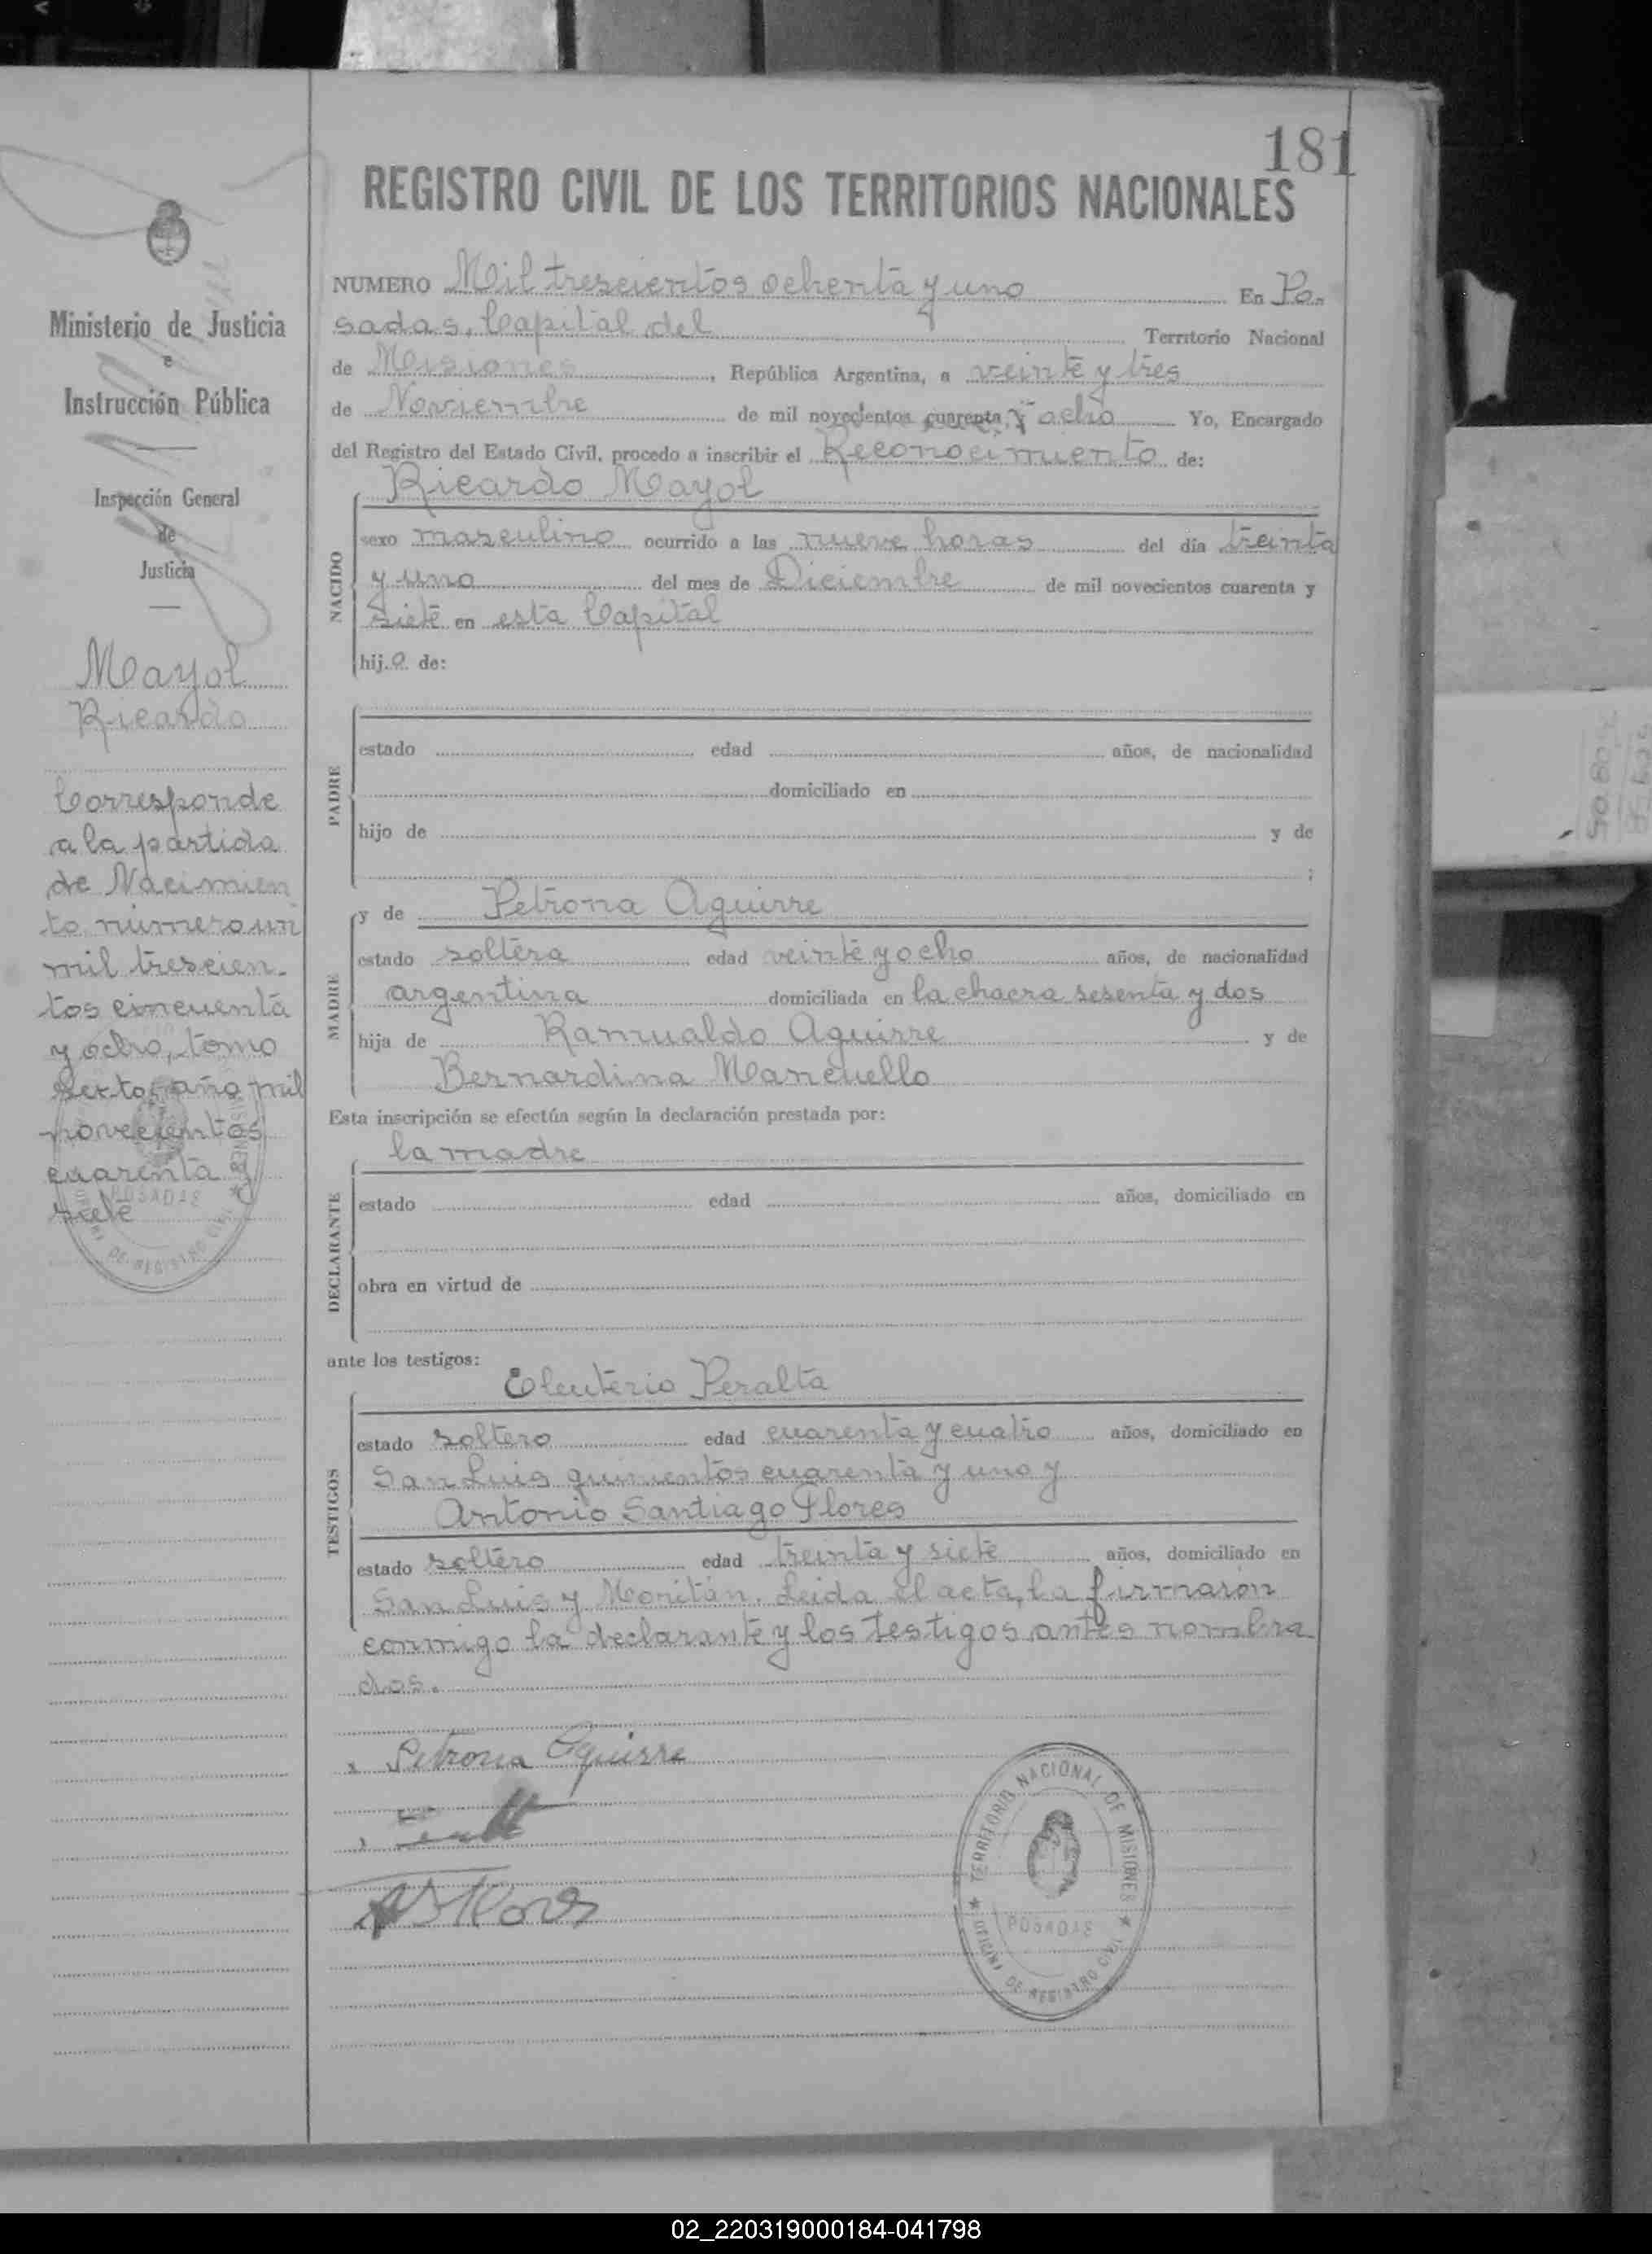 181
REGISTRO CIVIL DE LOS TERRITORIOS NACIONALES
NUMERO Mil trescientos ochenta y uno En Po-
sadas, Capital del Territorio Nacional
de Misiones, República Argentina, a veinte y tres
de Noviembre de mil novecientos cuarenta y ocho Yo, Encargado
del Registro del Estado Civil, procedo a inscribir el Reconocimiento de:
Ricardo Mayol
NACIDO
sexo masculino ocurrido a las nueve horas del día treinta
y uno del mes de Diciembre de mil novecientos cuarenta y
siete en esta Capital
hijo de:
PADRE
estado edad años, de nacionalidad
domiciliado en
hijo de y de
;
MADRE
y de Petrona Aguirre
estado soltera edad veinte y ocho años, de nacionalidad
argentina domiciliada en la chacra sesenta y dos
hija de Ramualdo Aguirre y de
Bernardina Mancuello
Esta inscripción se efectúa según la declaración prestada por:
la madre
DECLARANTE
estado edad años, domiciliado en
obra en virtud de
ante los testigos:
Eleuterio Peralta
TESTIGOS
estado soltero edad cuarenta y cuatro años, domiciliado en
San Luis quinientos cuarenta y uno y
Antonio Santiago Flores
estado soltero edad treinta y siete años, domiciliado en
San Luis y Moritán. Leida el acta, la firmaron
conmigo la declarante y los testigos antes nombra
dos.
Petrona Aguirre
AS Flores
TERRITORIO NACIONAL DE MISIONES
POSADAS
OFICINA DE REGISTRO CIVIL
Ministerio de Justicia
e
Instrucción Pública
Inspección General
de
Justicia
Mayol
Ricardo
Corresponde
a la partida
de Nacimien
to número un
mil trescien-
tos cincuenta
y ocho, tomo
sexto, año mil
novecientos
cuarenta y
siete
POSADAS
DE REGISTRO CIVIL
50805
02_220319000184-041798